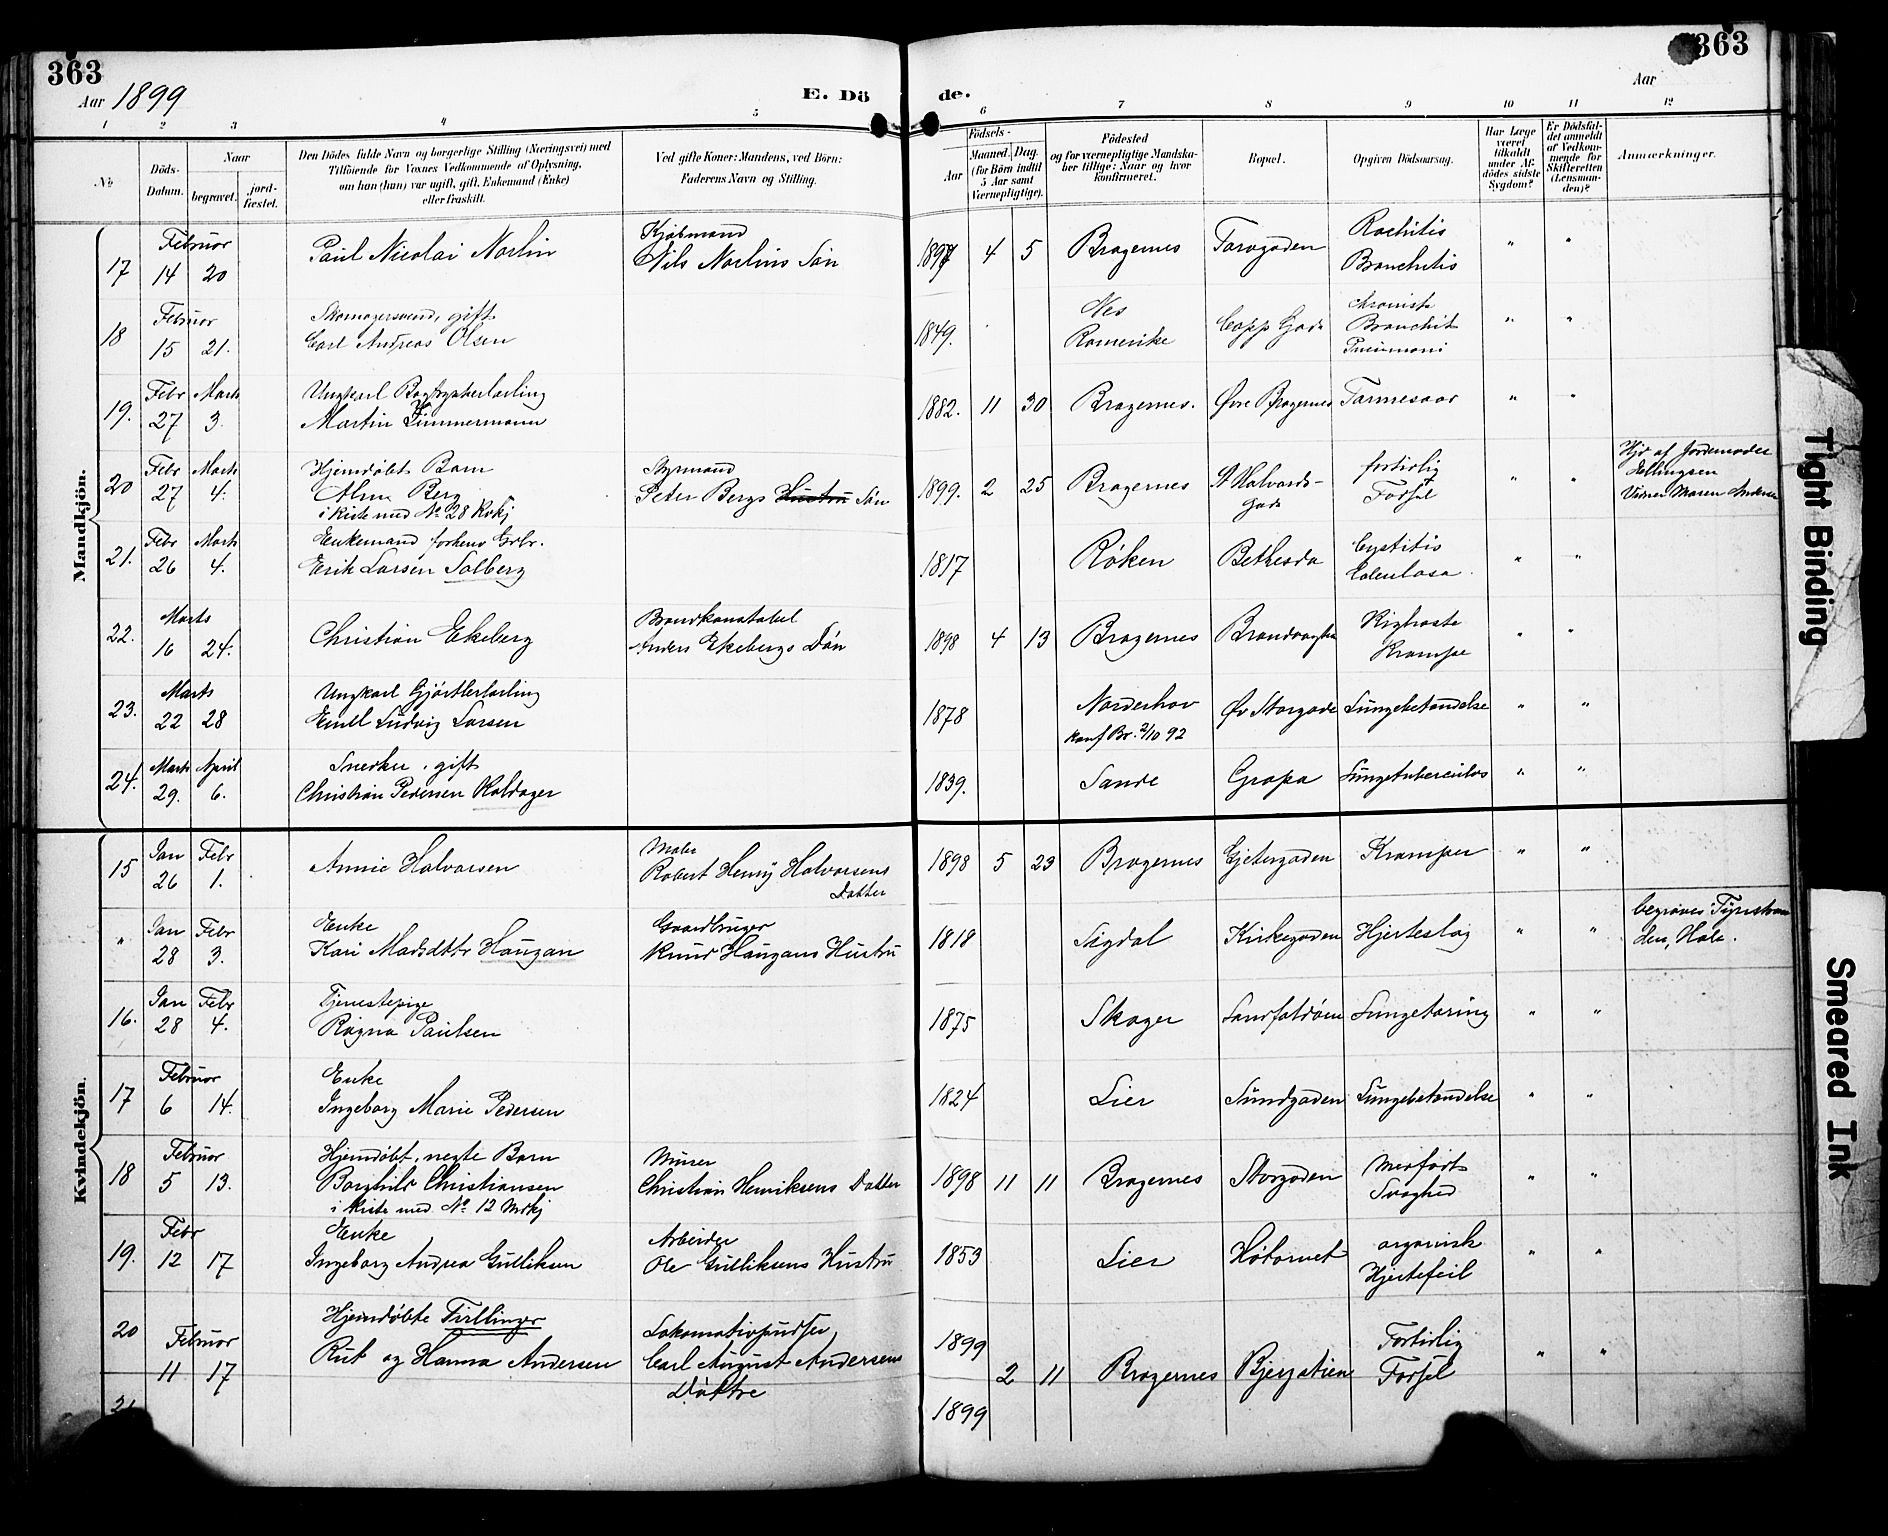 363
363
Aar 1899
E. Döde.
Aar
1 2 3 4 5 6 7 8 9 10 11 12
No
Döds-Datum.
Naar
begravet.
jordfæstet.
Den Dödes fulde Navn og borgerlige Stilling (Næringsvei) med
Tilföiende for Voxnes Vedkommende af Oplysning,
om han (hun) var ugift, gift, Enkemand (Enke)
eller fraskilt.
Ved gifte Koner: Mandens, ved Börn:
Faderens Navn og Stilling.
Födsels-
Aar
Maaned. Dag.
(for Börn indtil
5 Aar samt
Værnepligtige).
Födested
og for værnepligtige Mandskaber tillige: Naar og hvor
konfirmeret.
Bopæl.
Opgiven Dödsaarsag.
Har Læge
været
tilkaldt
under Afdödes sidste
Sygdom?
Er Dödsfaldet anmeldt
af Vedkommende for
Skifteretten
(Lensmanden)?
Anmærkninger.
Mandkjön.
17 Februar 14 20 Paul Nicolai Norlin Kjøbmand Nils Norlins Søn 1897 4 5 Bragernes Torvgaden Rachitis Bronchitis " "
18 Februar 15 21. Skomagersvend, gift Carl Andreas Olsen 1849. Nes Romerike Copp Gade chronisk Bronchit Pneumoni " "
19. Febr 27 Marts 3. Ungkarl Bogtrykkerlærling Martin Zimmermann 1882. 11 30 Bragernes. Øvre Bragernes Tarmesaar " "
20 Febr 27 Marts 4. Hjemdøbt Barn Alm Berg i Kiste med No 28 Kvkj Styrmand Peter Bergs Hustru Søn 1899. 2 25 Bragernes St Halvards-Gade fortidlig Fødsel " " Hjd af Jordemoder Ellingsen Vidner Maren Anderse
21. Febr 26 Marts 4. Enkemand forhenv Grbr. Erik Larsen Solberg 1817 Røken Bethesda Cystitis Calculosa. " "
22. Marts 16 24. Christian Ekeberg Brandkonstabel Anders Ekebergs Søn 1898 4 13 Bragernes Brandvagten Kighoste Krampe " "
23. Marts 22 28 Ungkarl Gjørtlerlærling Emil Ludvig Larsen 1878 Norderhov konf Br. 2/10 92 Øv Storgade Lungebetændelse " "
24. Marts 29. April 6. Snedker, gift Christian Pedersen Kaldager 1839. Sande Gropa Lungetuberculos " "
Kvindekjön.
15 Jan 26 Febr 1. Annie Halvorsen Maler Robert Henry Halvorsens Datter 1898 5 23 Bragernes Gjetergaden Kramper " "
" Jan 28 Febr 3. Enke Kari Madsdttr Haugan Gaardbruger Knud Haugans Hustru 1818 Sigdal Kirkegaden Hjerteslag " " begraves Tyristran den, Hole.
16. Jan 28 Febr 4. Tjenestepige Ragna Paulsen 1875 Skoger Landfaldøen Lungetæring " "
17 Februar 6 14. Enke Ingeborg Marie Pedersen 1824 Lier Sundgaden Lungebetændelse " "
18 Februar 5 13. Hjemdøbt, uegte Barn Borghild Christiansen i Kiste med No 12 Mdkj Murer Christian Henriksens Datter 1898 11 11 Bragernes Storgaden Medfødt Svaghed " "
19. Febr 12 17 Enke Ingeborg Andrea Gulliksen Arbeider Ole Gulliksens Hustru 1853 Lier Høtorvet organisk Hjertefeil " "
20 Februar 11 17 Hjemdøbte Tvillinger Rut og Hanna Andersen Lokomotivpudser, Carl August Andersens Døttre 1899 2 11 Bragernes Bjergstien Fortidlig Fødsel " "
21 1899
Tight Binding
Smeared Ink